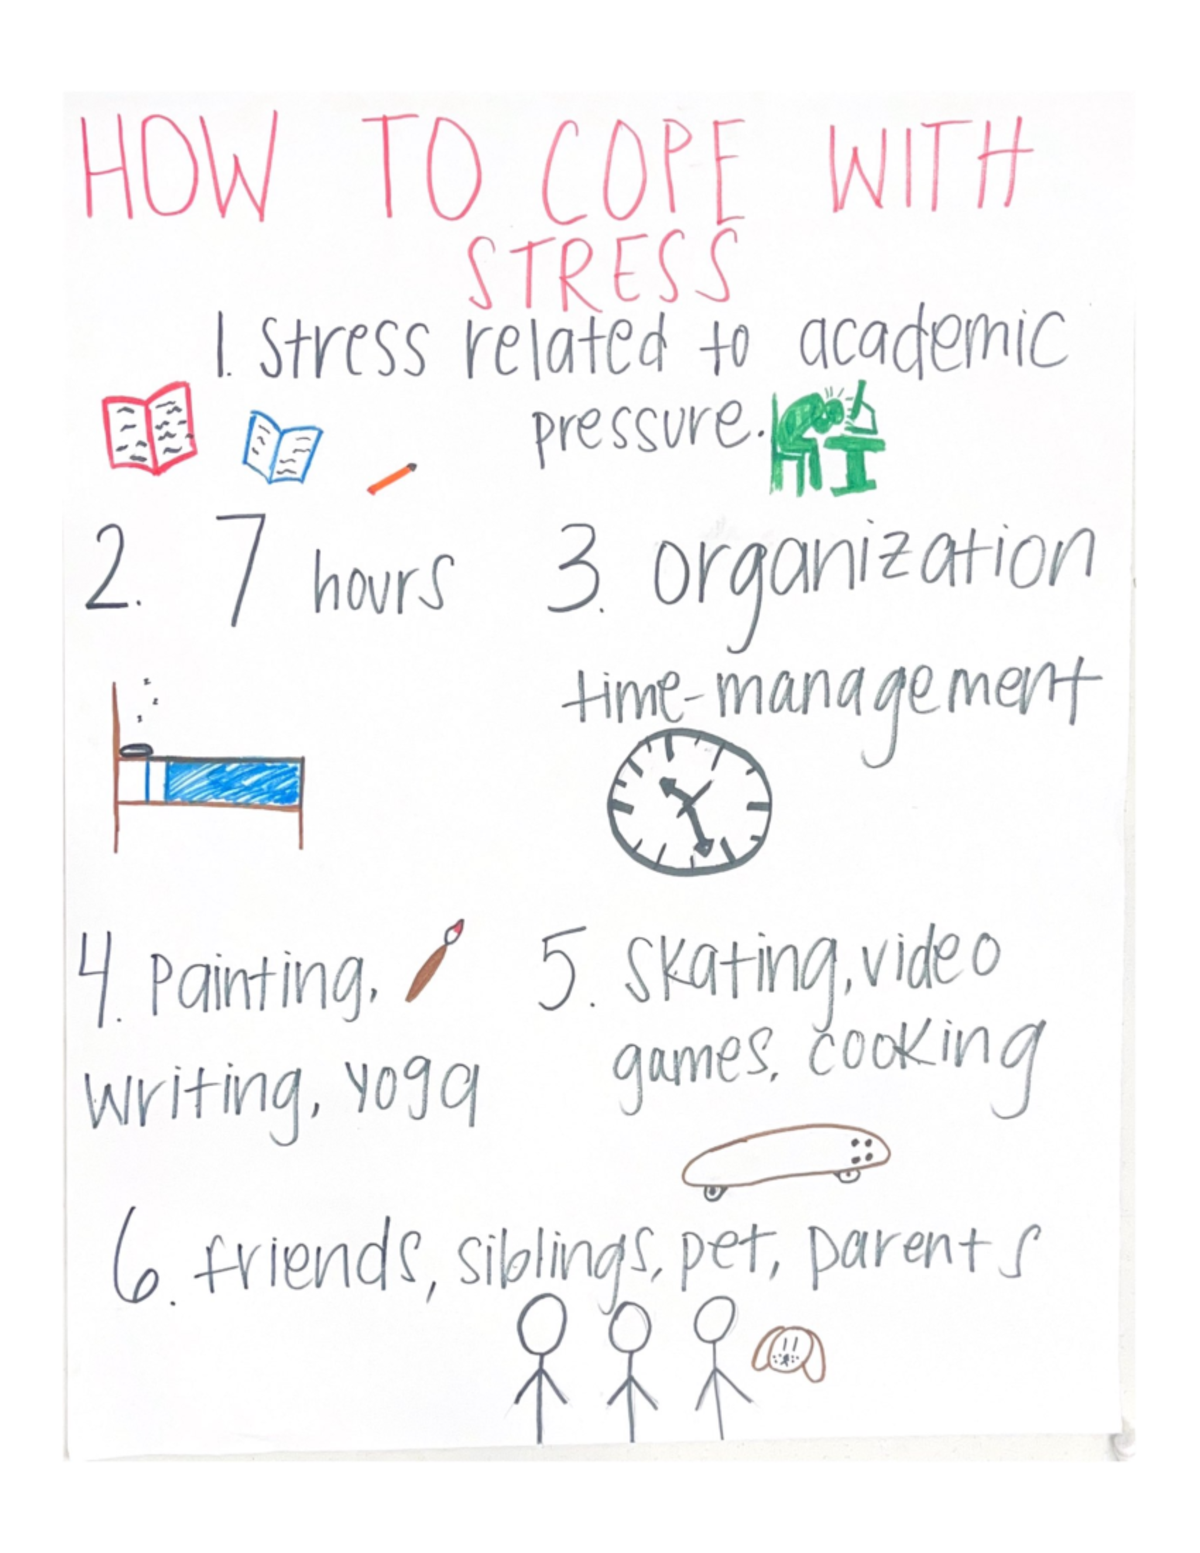 HOW TO COPE WITH
STRESS
1. Stress related to academic
pressure.
2. 7 hours
3. organization
time-management
4. Painting,
writing, yoga
5. skating, video
games, cooking
6. friends, siblings, pet, parents